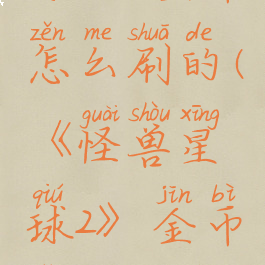 zěn me shuā de
怎么刷的(
guài shòu xīng
《怪兽星
qiú jīn bì
球2》金币